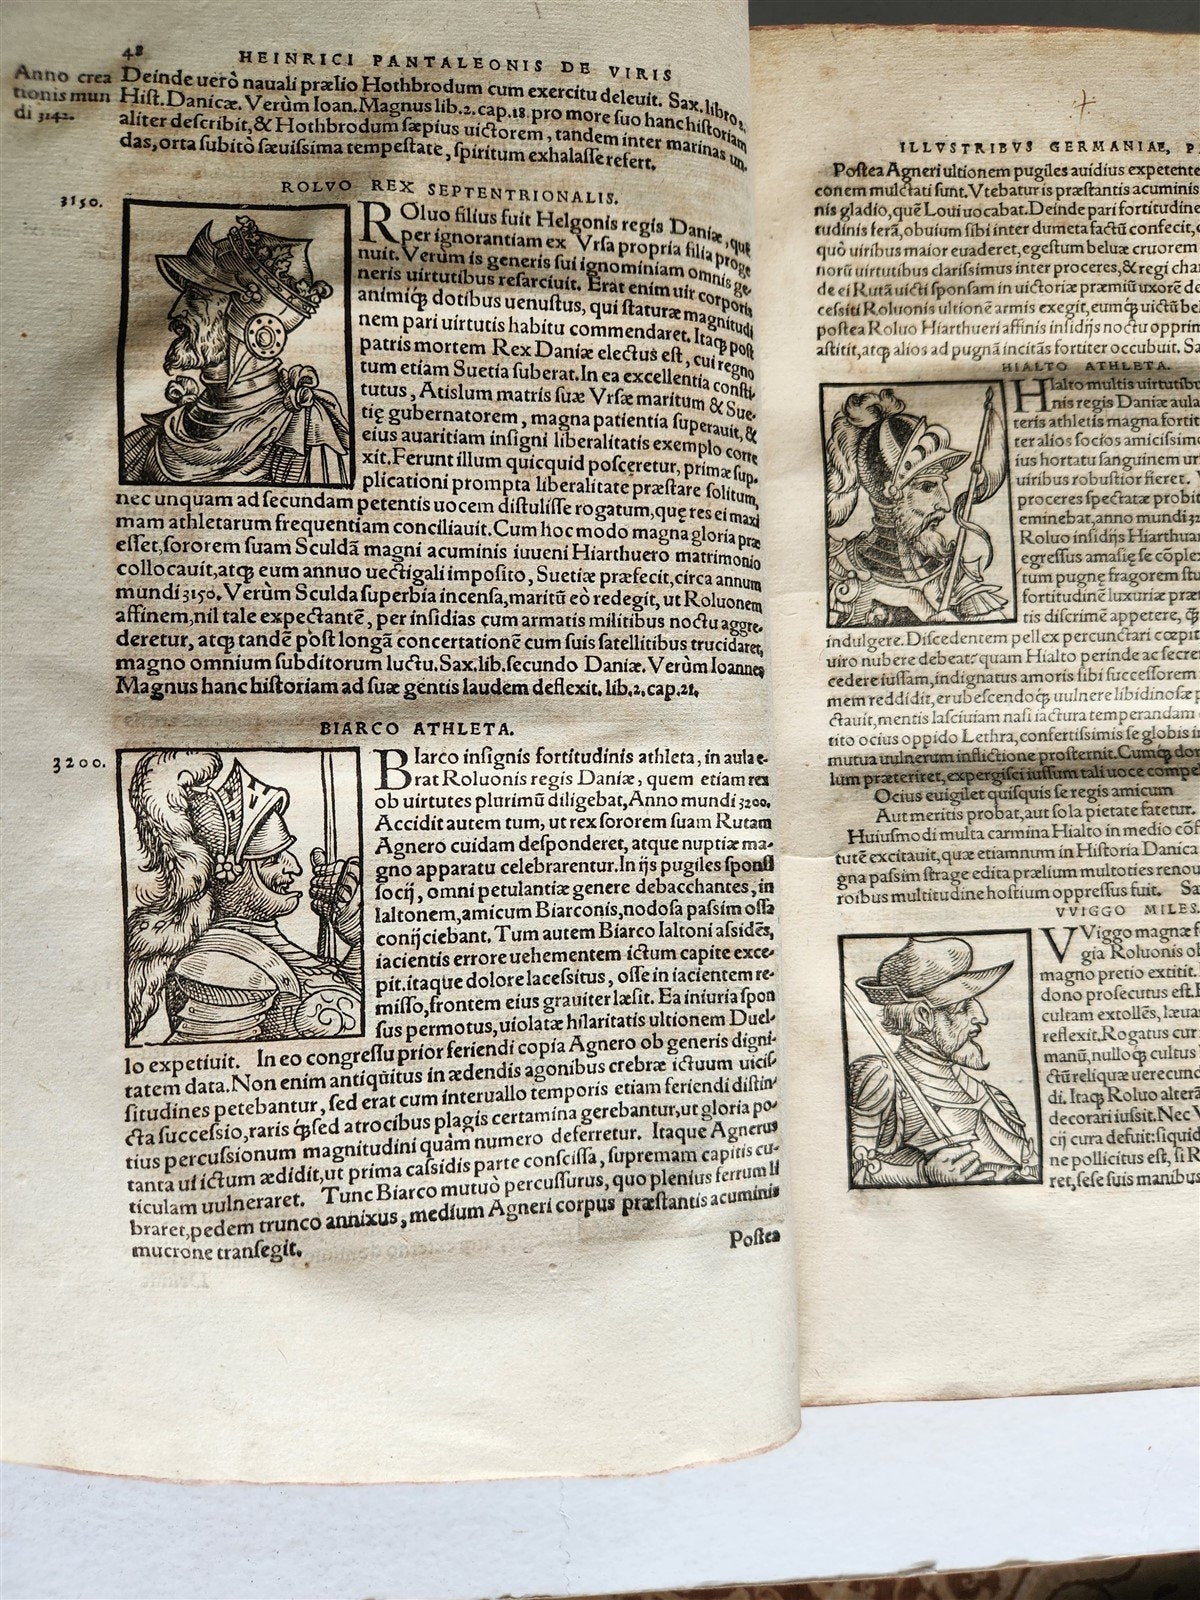 48
HEINRICI PANTALEONIS DE VIRIS
Anno crea
tionis mun
di 3142.
Deinde uerò nauali prælio Hothbrodum cum exercitu deleuit. Sax. libro 2.
Hist. Danicæ. Verùm Ioan. Magnus lib. 2. cap. 18. pro more suo hanc historiam
aliter describit, & Hothbrodum sæpius uictorem, tandem inter marinas un-
das, orta subitò sæuissima tempestate, spiritum exhalasse refert.
ROLVO REX SEPTENTRIONALIS.
3150.
ROluo filius fuit Helgonis regis Daniæ, quẽ
per ignorantiam ex Vrsa propria filia proge
nuit. Verùm is generis sui ignominiam omnis ge-
neris uirtutibus resarciuit. Erat enim uir corporis
animiq́; dotibus uenustus, qui staturæ magnitudi
nem pari uirtutis habitu commendaret. Itaq; post
patris mortem Rex Daniæ electus est, cui regno
tum etiam Suetia suberat. In ea excellentia consti-
tutus, Atislum matris suæ Vrsæ maritum & Sue-
tię gubernatorem, magna patientia superauit, &
eius auaritiam insigni liberalitatis exemplo corre
xit. Ferunt illum quicquid posceretur, primæ sup-
plicationi prompta liberalitate præstare solitum,
nec unquam ad secundam petentis uocem distulisse rogatum, quę res ei maxi
mam athletarum frequentiam conciliauit. Cum hoc modo magna gloria præ
esset, sororem suam Sculdã magni acuminis iuueni Hiarthuero matrimonio
collocauit, atq; eum annuo uectigali imposito, Suetiæ præfecit, circa annum
mundi 3150. Verùm Sculda superbia incensa, maritũ eò redegit, ut Roluonem
affinem, nil tale expectantẽ, per insidias cum armatis militibus noctu aggre-
deretur, atq; tandẽ post longã concertationẽ cum suis satellitibus trucidaret,
magno omnium subditorum luctu. Sax. lib. secundo Daniæ. Verùm Ioannes
Magnus hanc historiam ad suæ gentis laudem deflexit. lib. 2. cap. 21.
BIARCO ATHLETA.
3200.
BIarco insignis fortitudinis athleta, in aula e-
rat Roluonis regis Daniæ, quem etiam rex
ob uirtutes plurimũ diligebat, Anno mundi 3200.
Accidit autem tum, ut rex sororem suam Rutam
Agnero cuidam desponderet, atque nuptiæ ma-
gno apparatu celebrarentur. In ijs pugiles sponsi
socij, omni petulantiæ genere debacchantes, in
Ialtonem, amicum Biarconis, nodosa passim ossa
conijciebant. Tum autem Biarco Ialtoni assidẽs,
iacientis errore uehementem ictum capite exce-
pit. itaque dolore lacessitus, osse in iacientem re-
misso, frontem eius grauiter læsit. Ea iniuria spon
sus permotus, uiolatæ hilaritatis ultionem Duel-
lo expetiuit. In eo congressu prior feriendi copia Agnero ob generis digni-
tatem data. Non enim antiquitus in ædendis agonibus crebræ ictuum uicis-
situdines petebantur, sed erat cum interuallo temporis etiam feriendi distin-
cta successio, raris q́; sed atrocibus plagis certamina gerebantur, ut gloria po-
tius percussionum magnitudini quàm numero deferretur. Itaque Agnerus
tanta ui ictum ædidit, ut prima cassidis parte conscissa, supremam capitis cu-
ticulam uulneraret. Tunc Biarco mutuò percussurus, quo plenius ferrum li
braret, pedem trunco annixus, medium Agneri corpus præstantis acuminis
mucrone transegit.
Postea
ILLVSTRIBVS GERMANIAE, P
Postea Agneri ultionem pugiles auidius expetente
conem mulctati sunt. Vtebatur is præstantis acuminis
nis gladio, quẽ Loui uocabat. Deinde pari fortitudine
tudinis ferã, obuium sibi inter dumeta factũ confecit,
quò uiribus maior euaderet, egestum beluæ cruorem
norũ uirtutibus clarissimus inter proceres, & regi char
de ei Rutã uicti sponsam in uictoriæ præmiũ uxorẽ de
cessiti Roluonis ultionẽ armis exegit, eumq́; uictũ bel
postea Roluo Hiarthueri affinis insidijs noctu opprim
astitit, atq; alios ad pugnã incitãs fortiter occubuit. Sa
HIALTO ATHLETA.
HIalto multis uirtutibu
nis regis Daniæ aula
teris athletis magna fortit
ter alios socios amicissimo
ius hortatu sanguinem ur
uiribus robustior fieret.
proceres spectatæ probit
eminebat, anno mundi 32
Roluo insidijs Hiarthuar
egressus amasię se cõplex
tum pugnę fragorem stu
fortitudinẽ luxuriæ præt
tis discrimẽ appetere, q̃
indulgere. Discedentem pellex percunctari cœpit
uiro nubere debeat: quam Hialto perinde ac secret
cedere iussam, indignatus amoris sibi successorem
mem reddidit, erubescendoq́; uulnere libidinosæ p
ctauit, mentis lasciuiam nasi iactura temperandam
tito ocius oppido Lethra, confertissimis se globis i
mutua uulnerum inflictione prosternit. Cumq́; dor
lum præteriret, expergisci iussum tali uoce compel
Ocius euigilet quisquis se regis amicum
Aut meritis probat, aut sola pietate fatetur.
Huiusmodi multa carmina Hialto in medio cõf
tutẽ excitauit, quæ etiamnum in Historia Danica
gna passim strage edita prælium multoties renou
roibus multitudine hostium oppressus fuit. Sa
VVIGGO MILES.
VViggo magnæ f
gia Roluonis ob
magno pretio extitit.
dono prosecutus est.
cultam extollẽs, læuam
reflexit. Rogatus cur
manũ, nulloq́; cultus
ctũ reliquæ uerecund
di. Itaq; Roluo altera
decorari iussit. Nec
cij cura defuit: siquid
ne pollicitus est, si R
ret, sese suis manibus